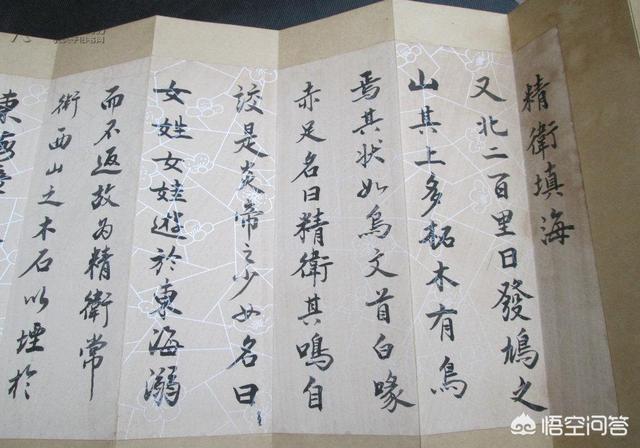 精衛填海
又北二百里曰發鳩之
山其上多柘木有鳥
焉其狀如烏文首白喙
赤足名曰精衛其鳴自
詨是炎帝之少女名曰
女姓女娃遊於東海溺
而不返故為精衛常
銜西山之木石以堙於
東海
悟空问答